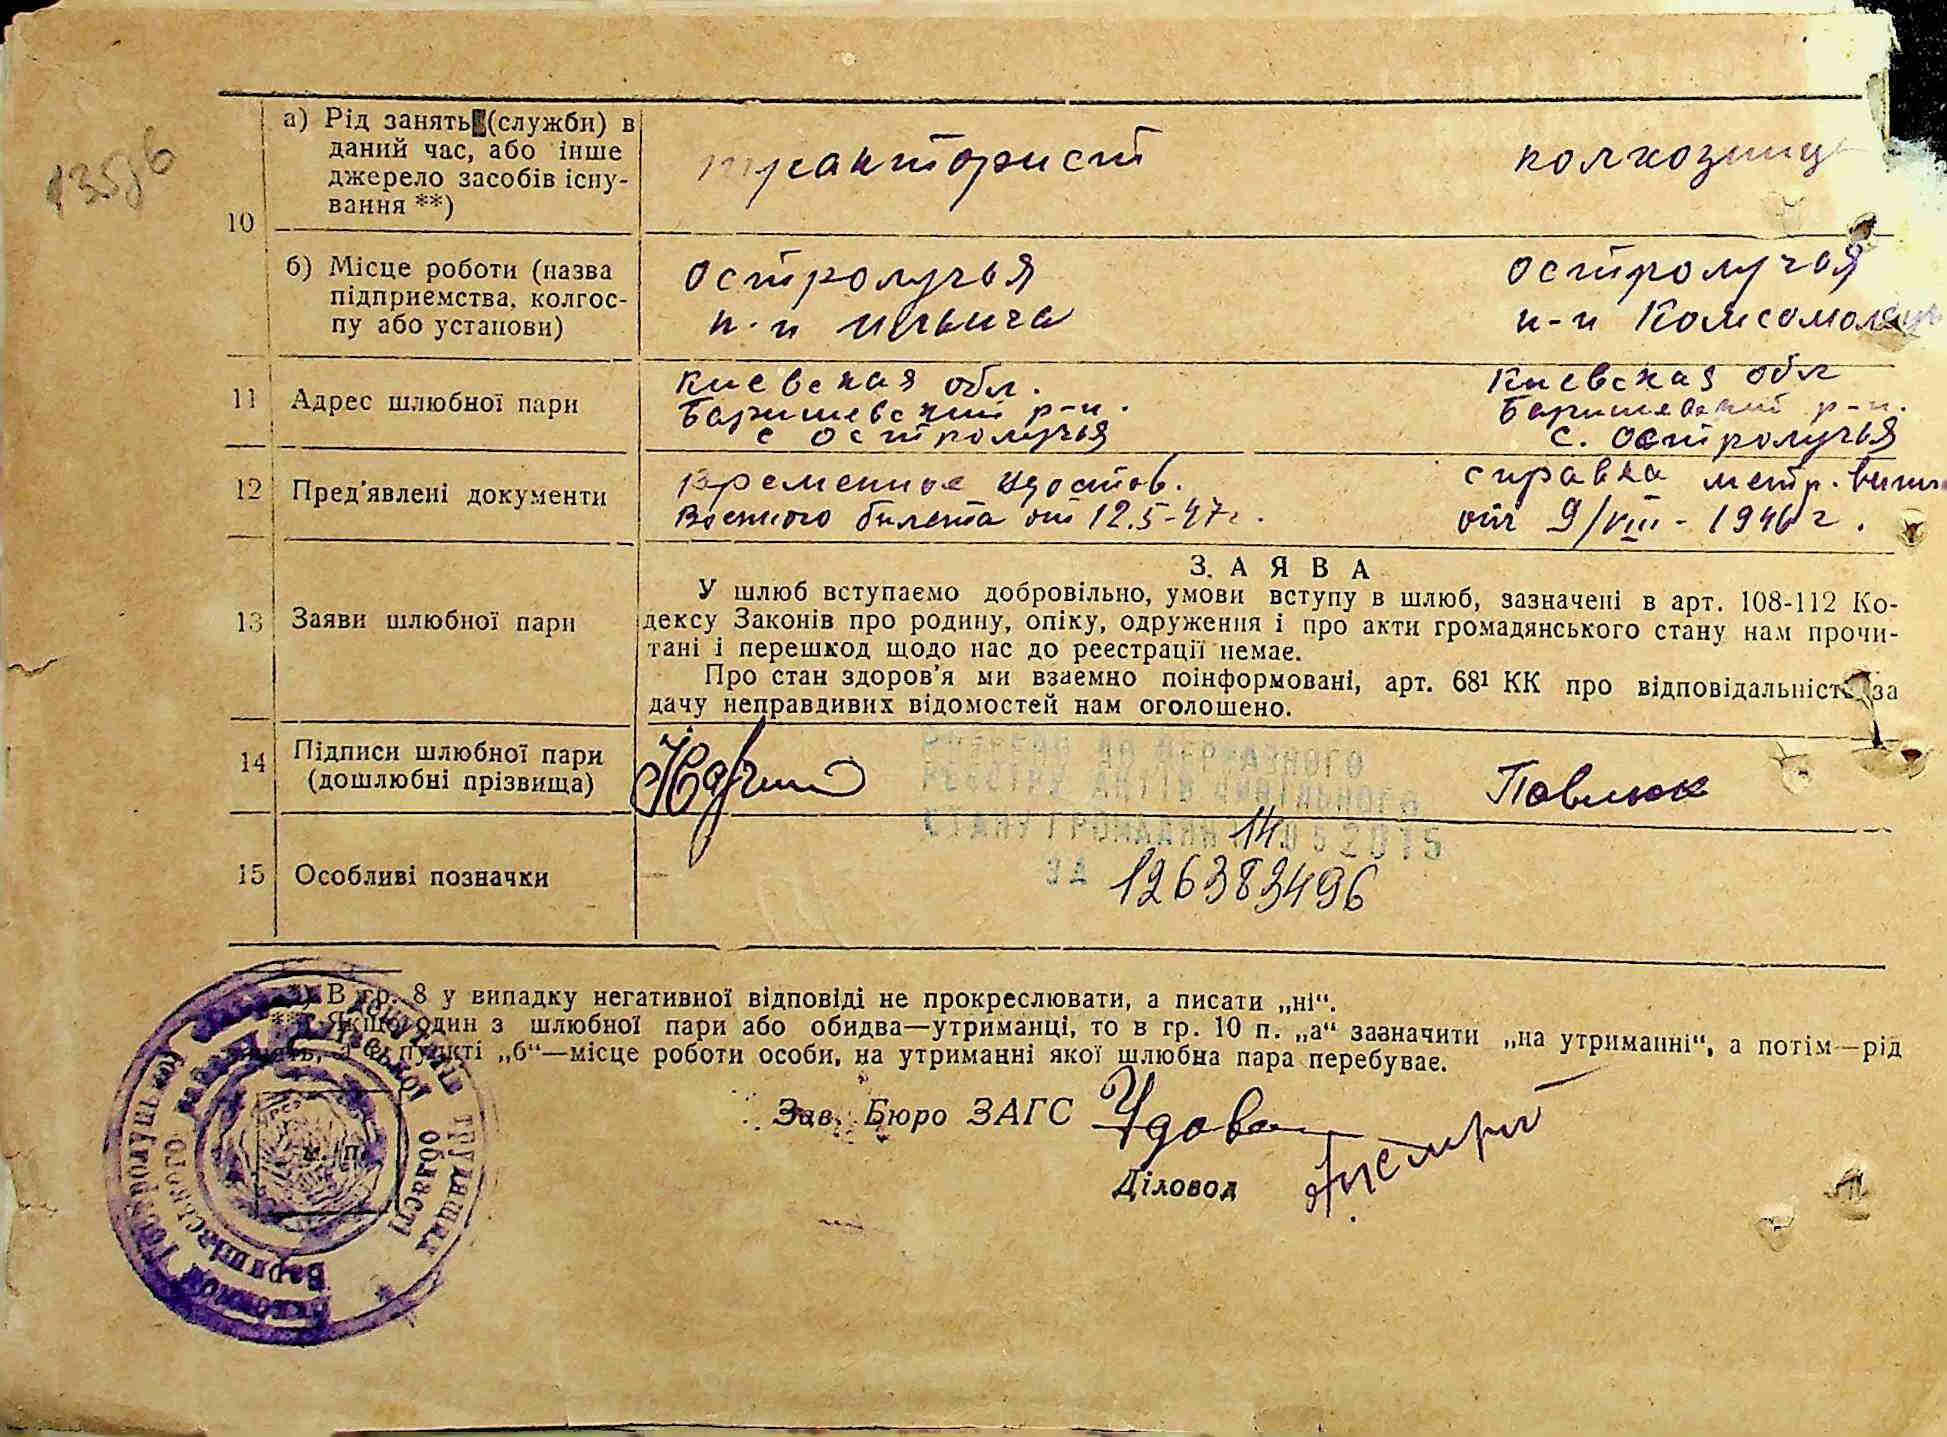 а) Рід занять (служби) в
даний час, або інше
джерело засобів існу-
вання **)
тракторист
колхозница
10
б) Місце роботи (назва
підприємства, колгос-
пу або установи)
остролучья
к-п ильича
остролучья
к-п Комсомолец
11 Адрес шлюбної пари
Киевская обл.
Баришевский р-н.
с остролучья
Киевская обл
Баришевский р-н.
с. остролучья
12 Пред'явлені документи
временное удостов.
Военного билета от 12.5-47г.
справка метр.
от 9/VIII - 1946 г.
З А Я В А
13 Заяви шлюбної пари
У шлюб вступаємо добровільно, умови вступу в шлюб, зазначені в арт. 108-112 Ко-
дексу Законів про родину, опіку, одруження і про акти громадянського стану нам прочи-
тані і перешкод щодо нас до реєстрації немає.
Про стан здоров'я ми взаємно поінформовані, арт. 68¹ КК про відповідальність за
дачу неправдивих відомостей нам оголошено.
14 Підписи шлюбної пари
(дошлюбні прізвища)
Павлюк
ДО ДЕРЖАВНОГО
РЕЄСТРУ АКТІВ ЦИВІЛЬНОГО
СТАНУ ГРОМАДЯН 14.05 2015
ЗА 126383496
15 Особливі позначки
*) В гр. 8 у випадку негативної відповіді не прокреслювати, а писати „ні“.
**) Якщо один з шлюбної пари або обидва—утриманці, то в гр. 10 п. „а“ зазначити „на утриманні“, а потім—рід
занять, а в пункті „б“—місце роботи особи, на утриманні якої шлюбна пара перебуває.
Зав. Бюро ЗАГС
Діловод
м. п.
Виконком Остролуцької сільської ради депутатів трудящих
Баришівського району Київської області